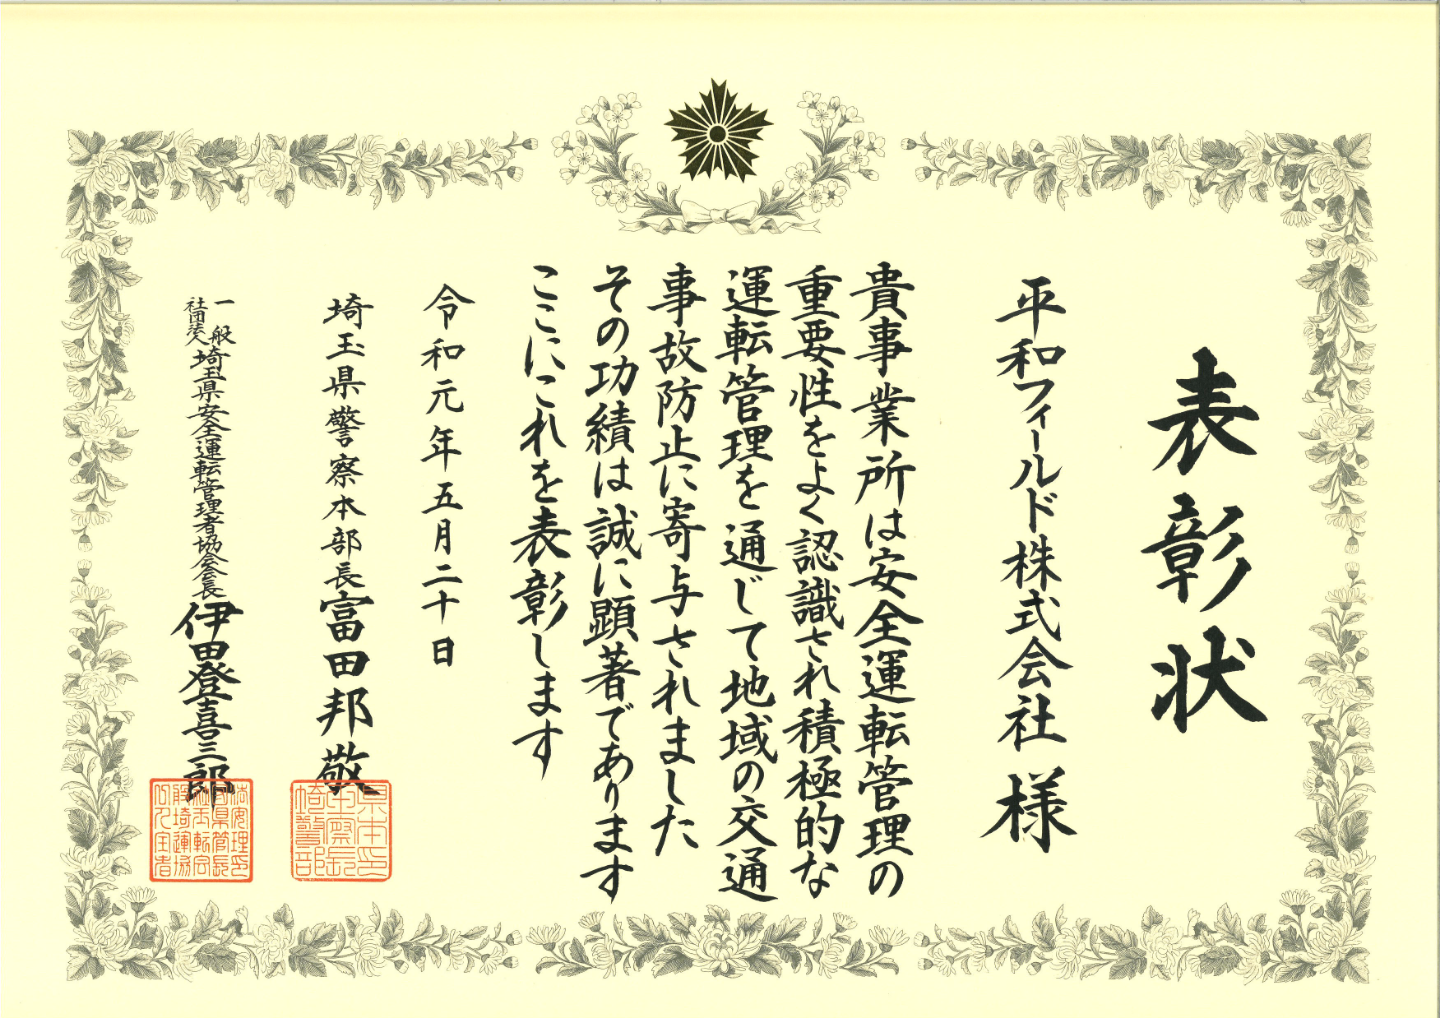 表彰状
平和フィールド株式会社 様
貴事業所は安全運転管理の
重要性をよく認識され積極的な
運転管理を通じて地域の交通
事故防止に寄与されました
その功績は誠に顕著であります
ここにこれを表彰します
令和元年五月二十日
埼玉県警察本部長 富田邦敬
一般社団法人 埼玉県安全運転管理者協会会長 伊田登喜三郎